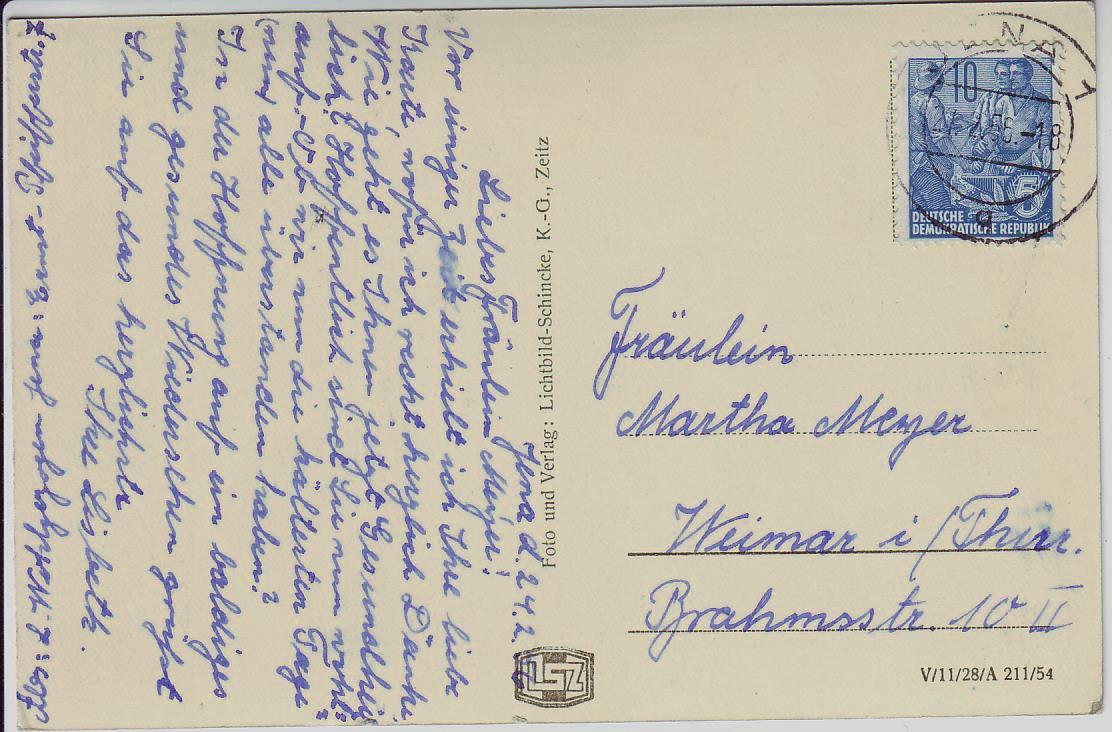 Jena d. 24.2.
Liebes Fräulein Meyer!
Vor einiger Zeit erhielt ich Ihre liebe
Karte, wofür ich recht herzlich Danke.
Wie geht es Ihnen jetzt Gesundheit=
lich? Hoffentlich sind Sie nun wohl=
auf. – Ob wir nun die kältesten Tage
(nun) alle überstanden haben?
In der Hoffnung auf ein baldiges
und gesundes Wiedersehen grüßt
Sie auf das herzlichste
Ihre Lisbeth.
Foto und Verlag: Lichtbild-Schincke, K.-G., Zeitz
LSZ
10
5
DEUTSCHE
DEMOKRATISCHE REPUBLIK
JENA 1
2.56.-18
a
Fräulein
Martha Meyer
Weimar i/Thür.
Brahmsstr. 10 II
V/11/28/A 211/54